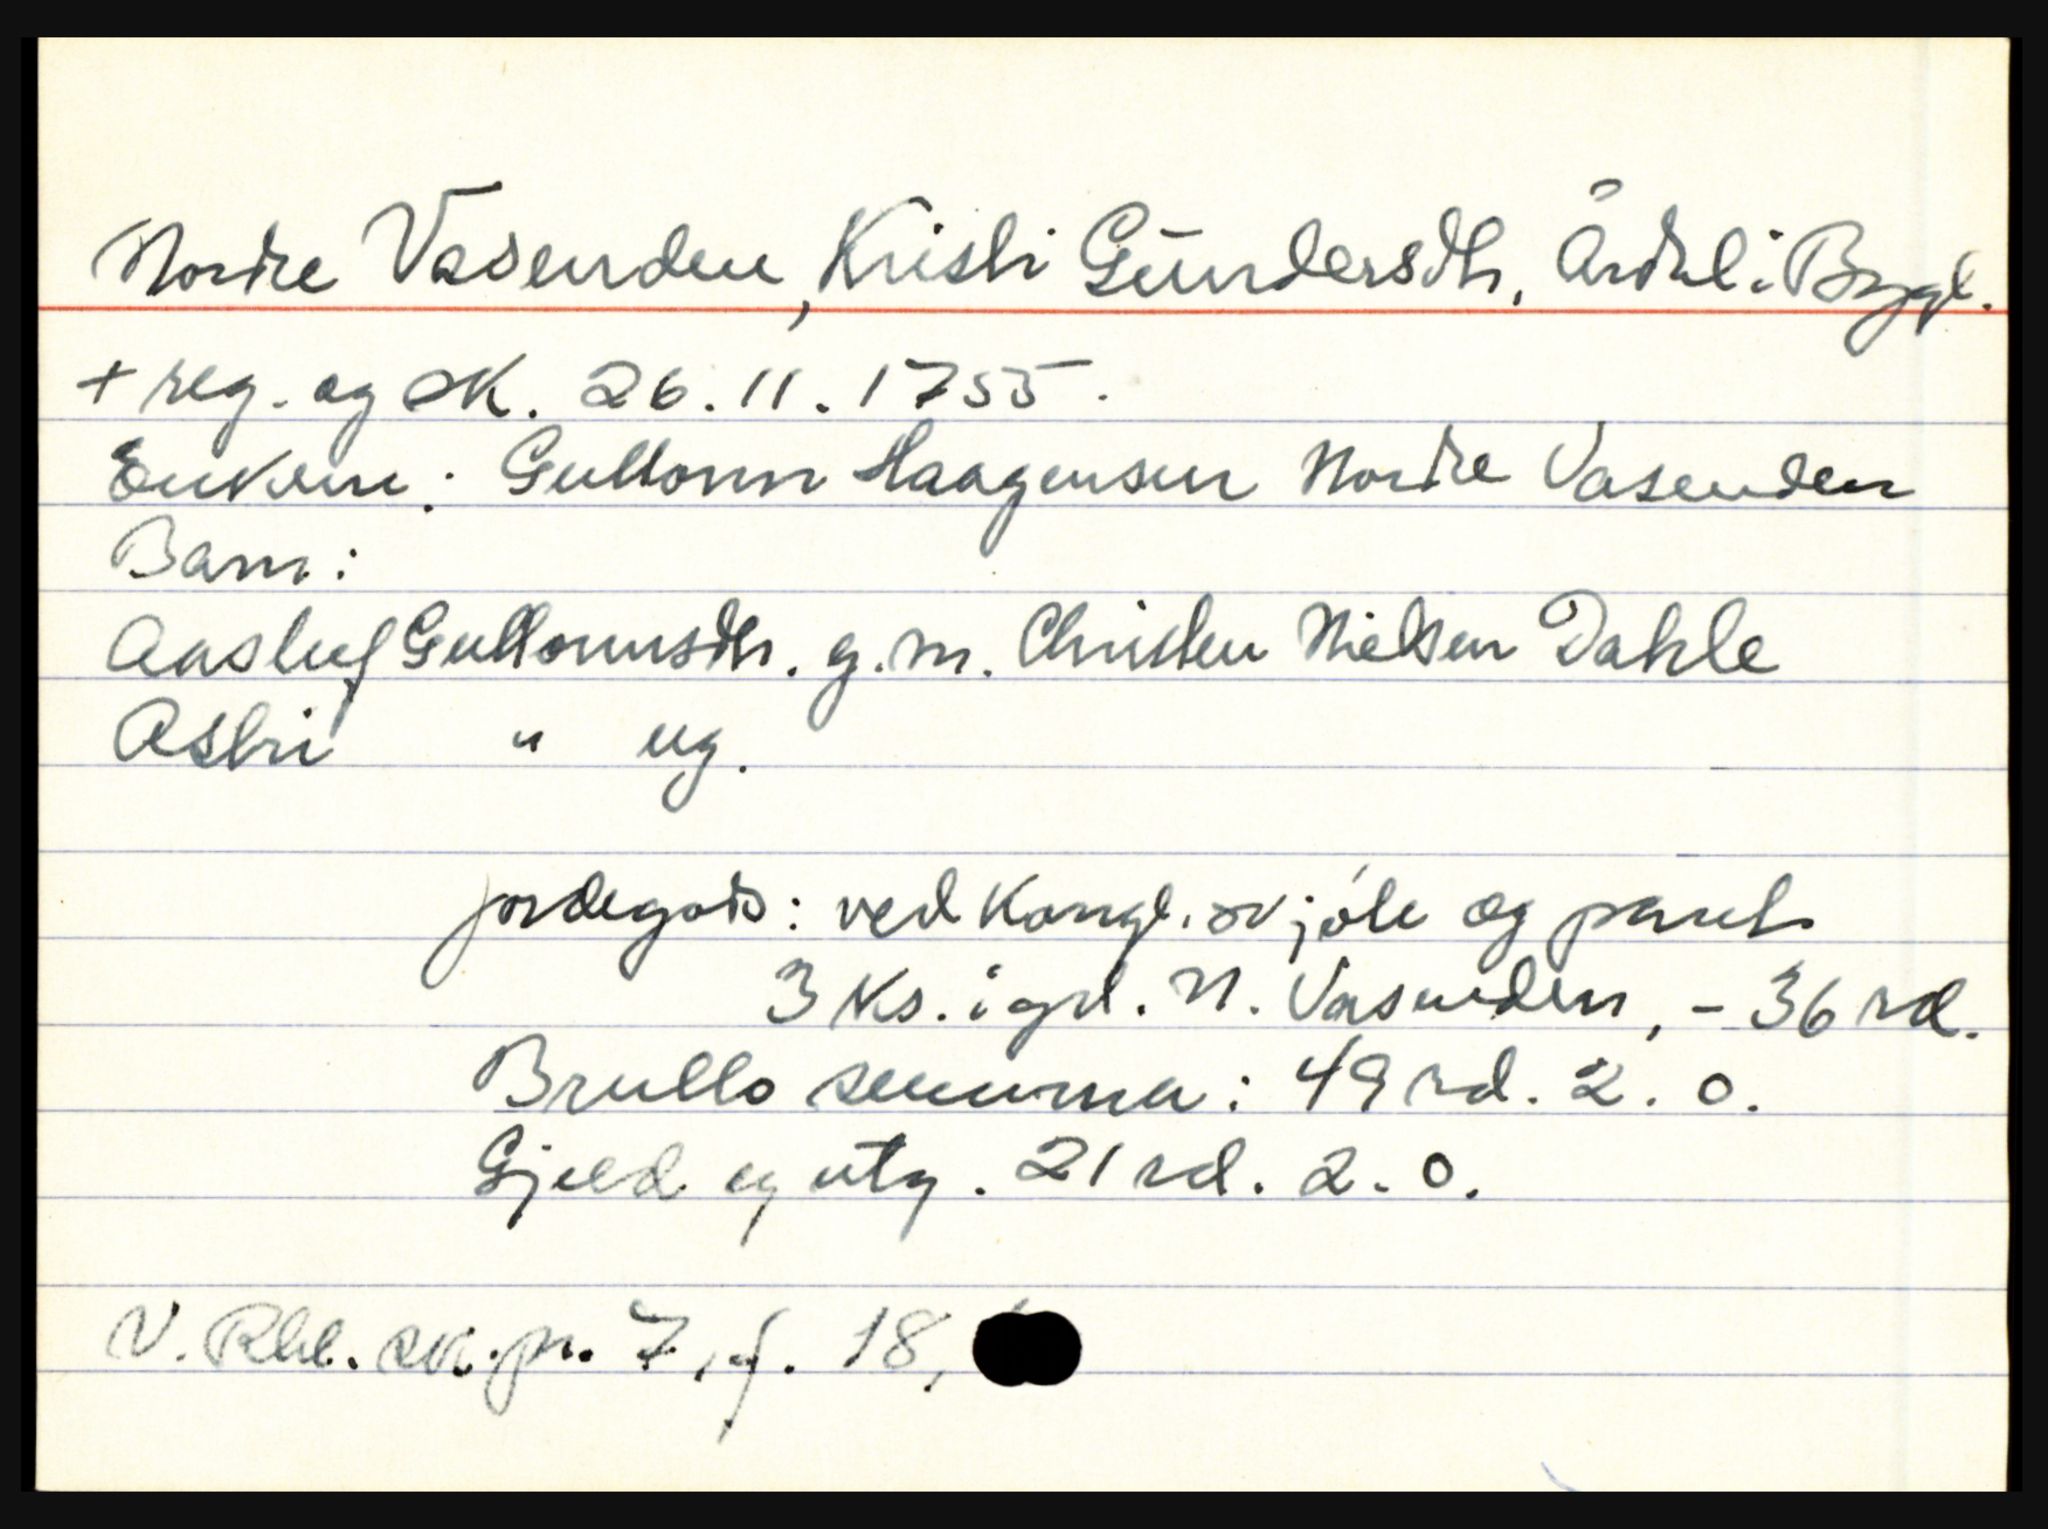 Nordre Vasenden, Kristi Gundersdtr. Årdal i Bygl.
+ reg. og sk. 26.11.1755.
Enkem.: Guttorm Haagensen Nordre Vasenden
Barn:
Aasluf Guttormsdtr. g.m. Christen Nielsen Dahle
Asbri " ug.
jordegods: ved Kongl. skjöte og pante
3 ks. i grd. N. Vasenden, - 36 rd.
Brutto summa: 49 rd. 2. 0.
Gjeld og utg. 21 rd. 2. 0.
V. Rbl. sk. pr. 7, f. 18,